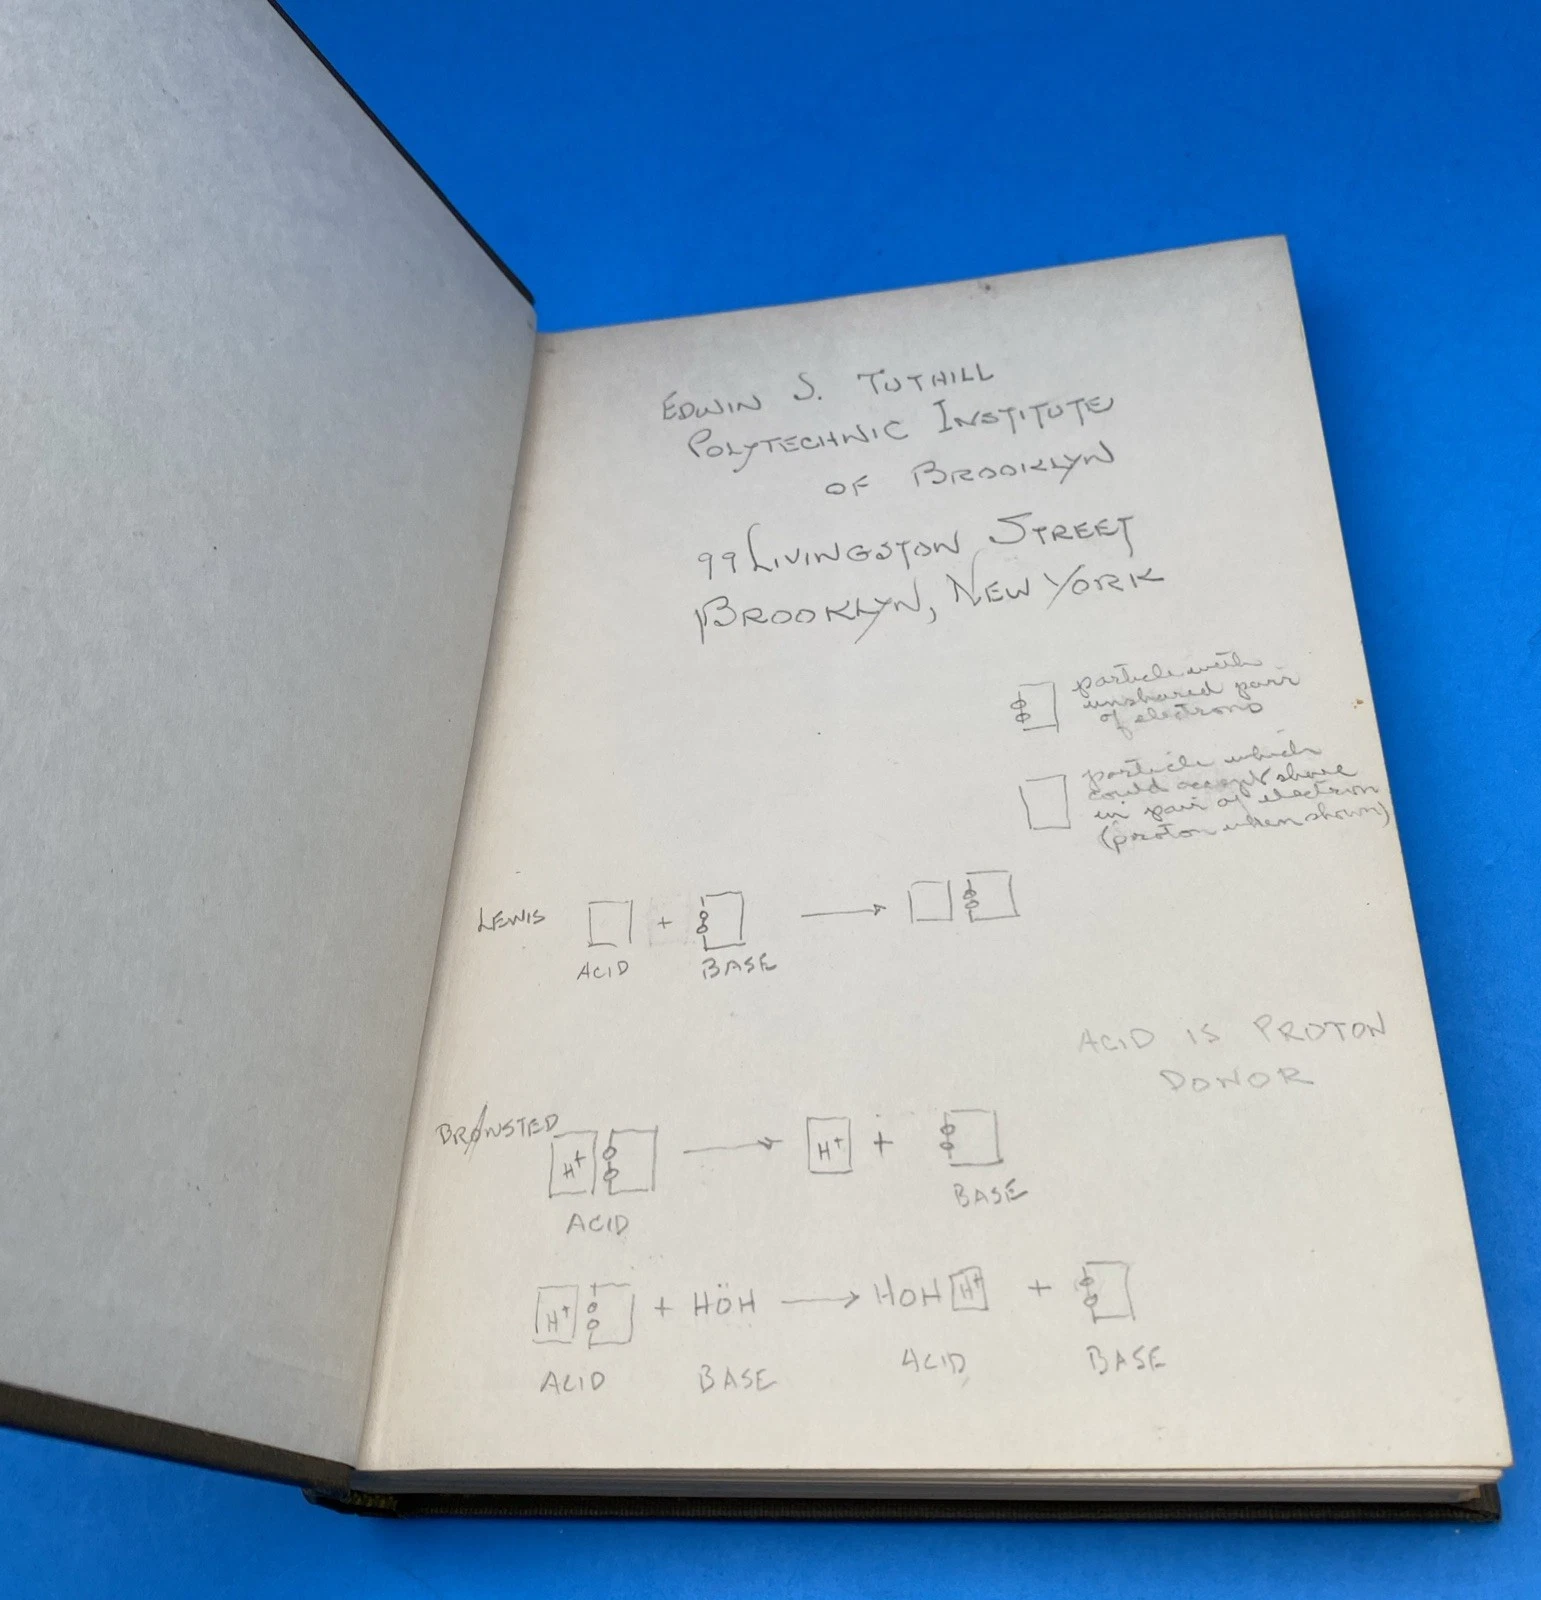 EDWIN S. TUTHILL
POLYTECHNIC INSTITUTE
OF BROOKLYN
99 LIVINGSTON STREET
BROOKLYN, NEW YORK
particle with
unshared pair
of electrons
particle which
could accept share
in pair of electron
(proton when shown)
LEWIS + →
ACID BASE
ACID IS PROTON
DONOR
BRØNSTED H+ → H+ +
ACID BASE
H+ + HÖH → HOH H+ +
ACID BASE ACID BASE